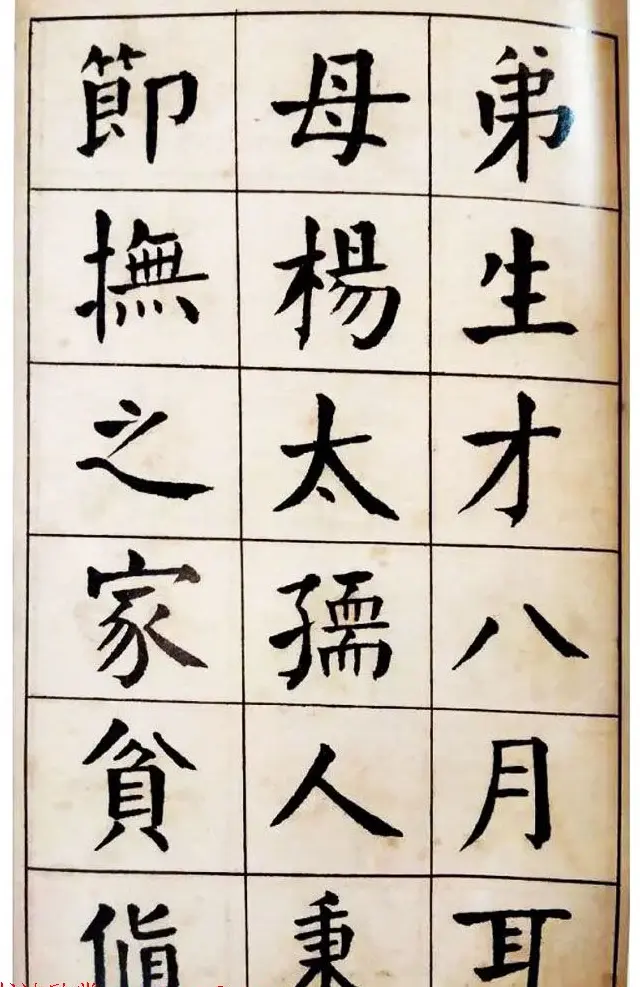 弟生才八月耳
母楊太孺人秉
節撫之家貧